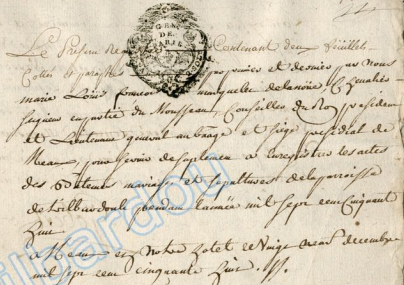 24
Le Present Re Contenant deux feuillets
Cottés et paraphés par premier et dernier par nous
marie Loüis francois marquelet de la noüe, Chevalier
seigneur en partie du Mousseau, Conseiller du Roy president
et Lieutenant general au bage et siege presidial de
Meaux, pour servir de suplement a enregistrer les actes
des Batemes mariages et sepultures de la paroisse
de vilbardoule pendant l'année mil sept cent Cinquant
huit
a Meaux en notre hotel ce vingt decembre
mil sept cent cinquante huit ./.
GEN
DE
PARIS
ilbardou